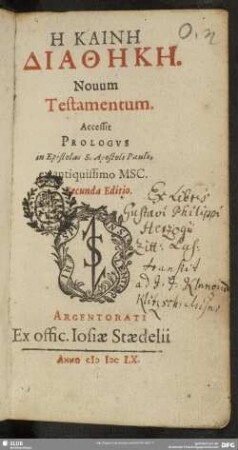 Η ΚΑΙΝΗ
ΔΙΑΘΗΚΗ.
Nouum
Testamentum.
Accessit
PROLOGVS
in Epistolas S. Apostoli Pauli,
ex antiquissimo MSC.
Secunda Editio.
Ex Libris
Gustavi Philippi
ARGENTORATI
Ex offic. Iosiæ Stædelii
ANNO cIↄ Iↄc LX.